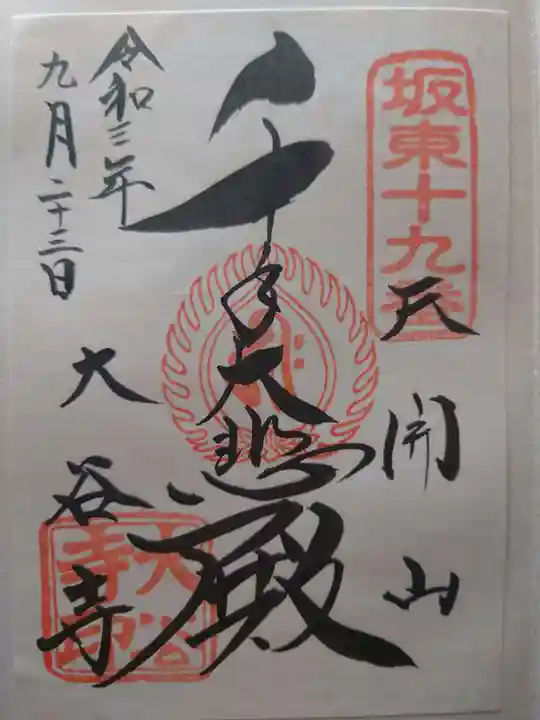 坂東十九番
天開山
千手大悲殿
令和三年
九月二十三日
大谷寺
大谷寺印